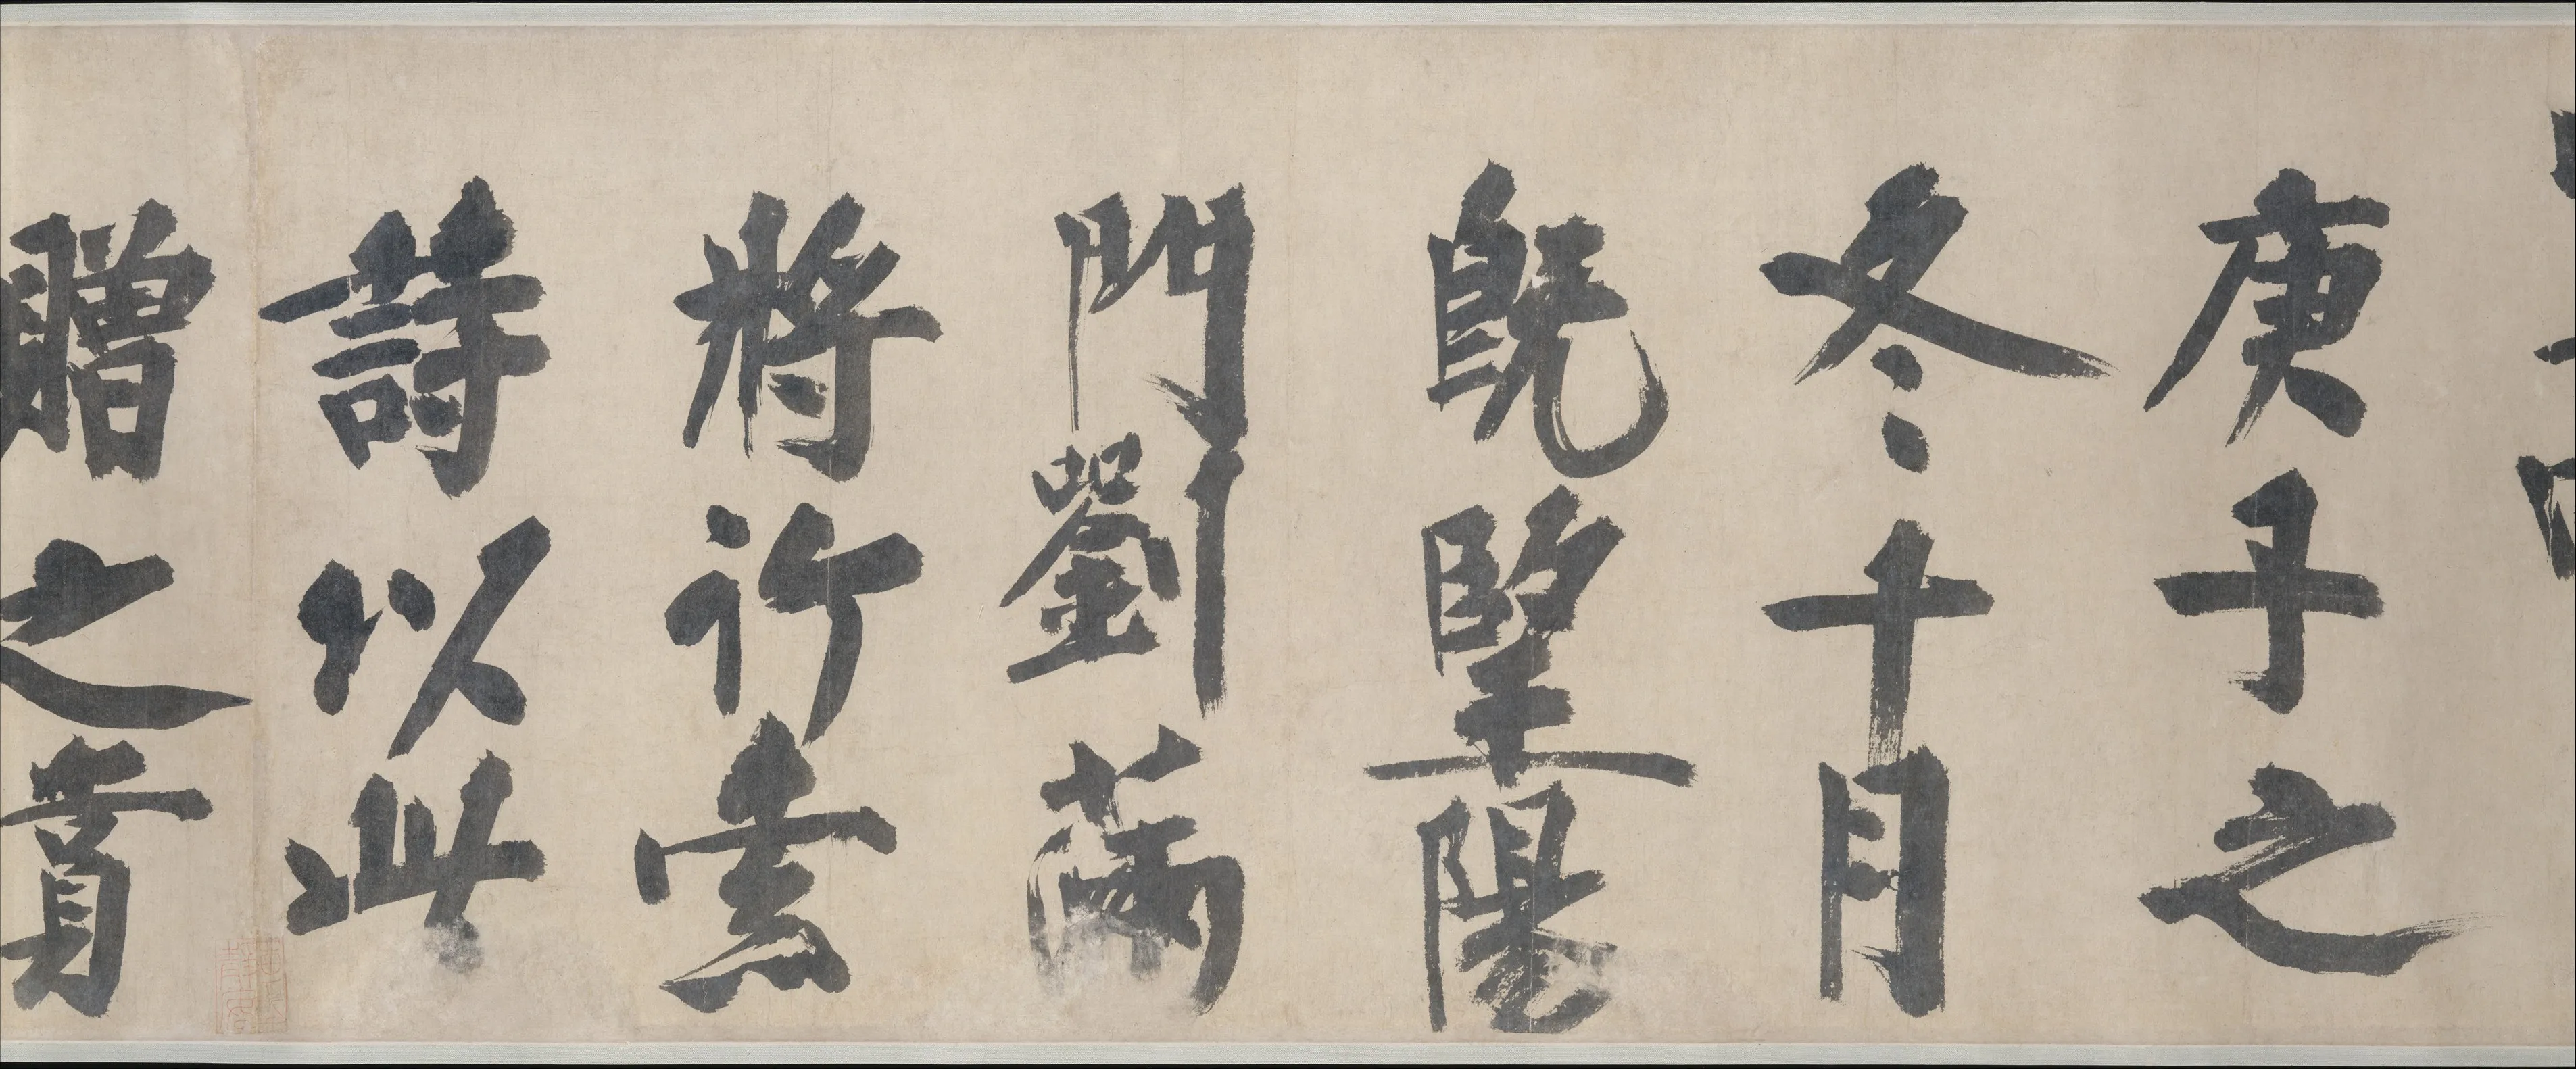 庚子之
冬十月
既朢陽
門劉滿
將行索
詩以此
贈之賁